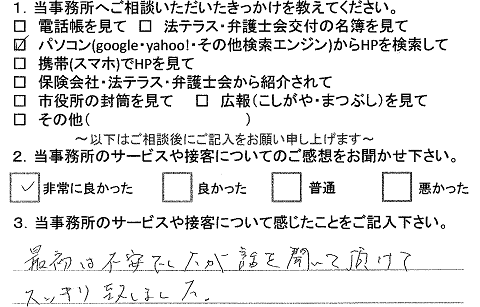 1. 当事務所へご相談いただいたきっかけを教えてください。
□ 電話帳を見て □ 法テラス・弁護士会交付の名簿を見て
☑ パソコン(google・yahoo!・その他検索エンジン)からHPを検索して
□ 携帯(スマホ)でHPを見て
□ 保険会社・法テラス・弁護士会から紹介されて
□ 市役所の封筒を見て □ 広報(こしがや・まつぶし)を見て
□ その他( )
～以下はご相談後にご記入をお願い申し上げます～
2. 当事務所のサービスや接客についてのご感想をお聞かせ下さい。
☑ 非常に良かった □ 良かった □ 普通 □ 悪かった
3. 当事務所のサービスや接客について感じたことをご記入下さい。
最初は不安でしたが話を聞いて頂けて
スッキリ致しました。